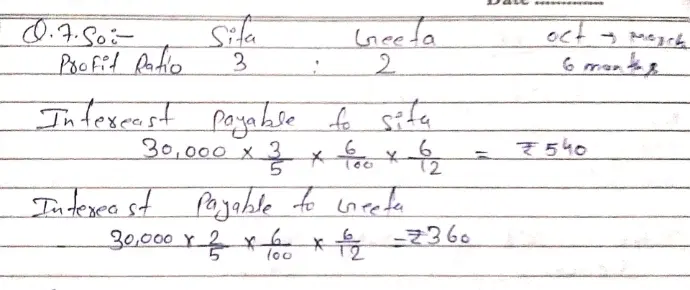 Date
Q.7.So:- Sita Geeta oct → march
Profit Ratio 3 : 2 6 months
Intereast payable to sita
30,000 × 3/5 × 6/100 × 6/12 = ₹540
Intereast Payable to Geeta
30,000 × 2/5 × 6/100 × 6/12 = ₹360